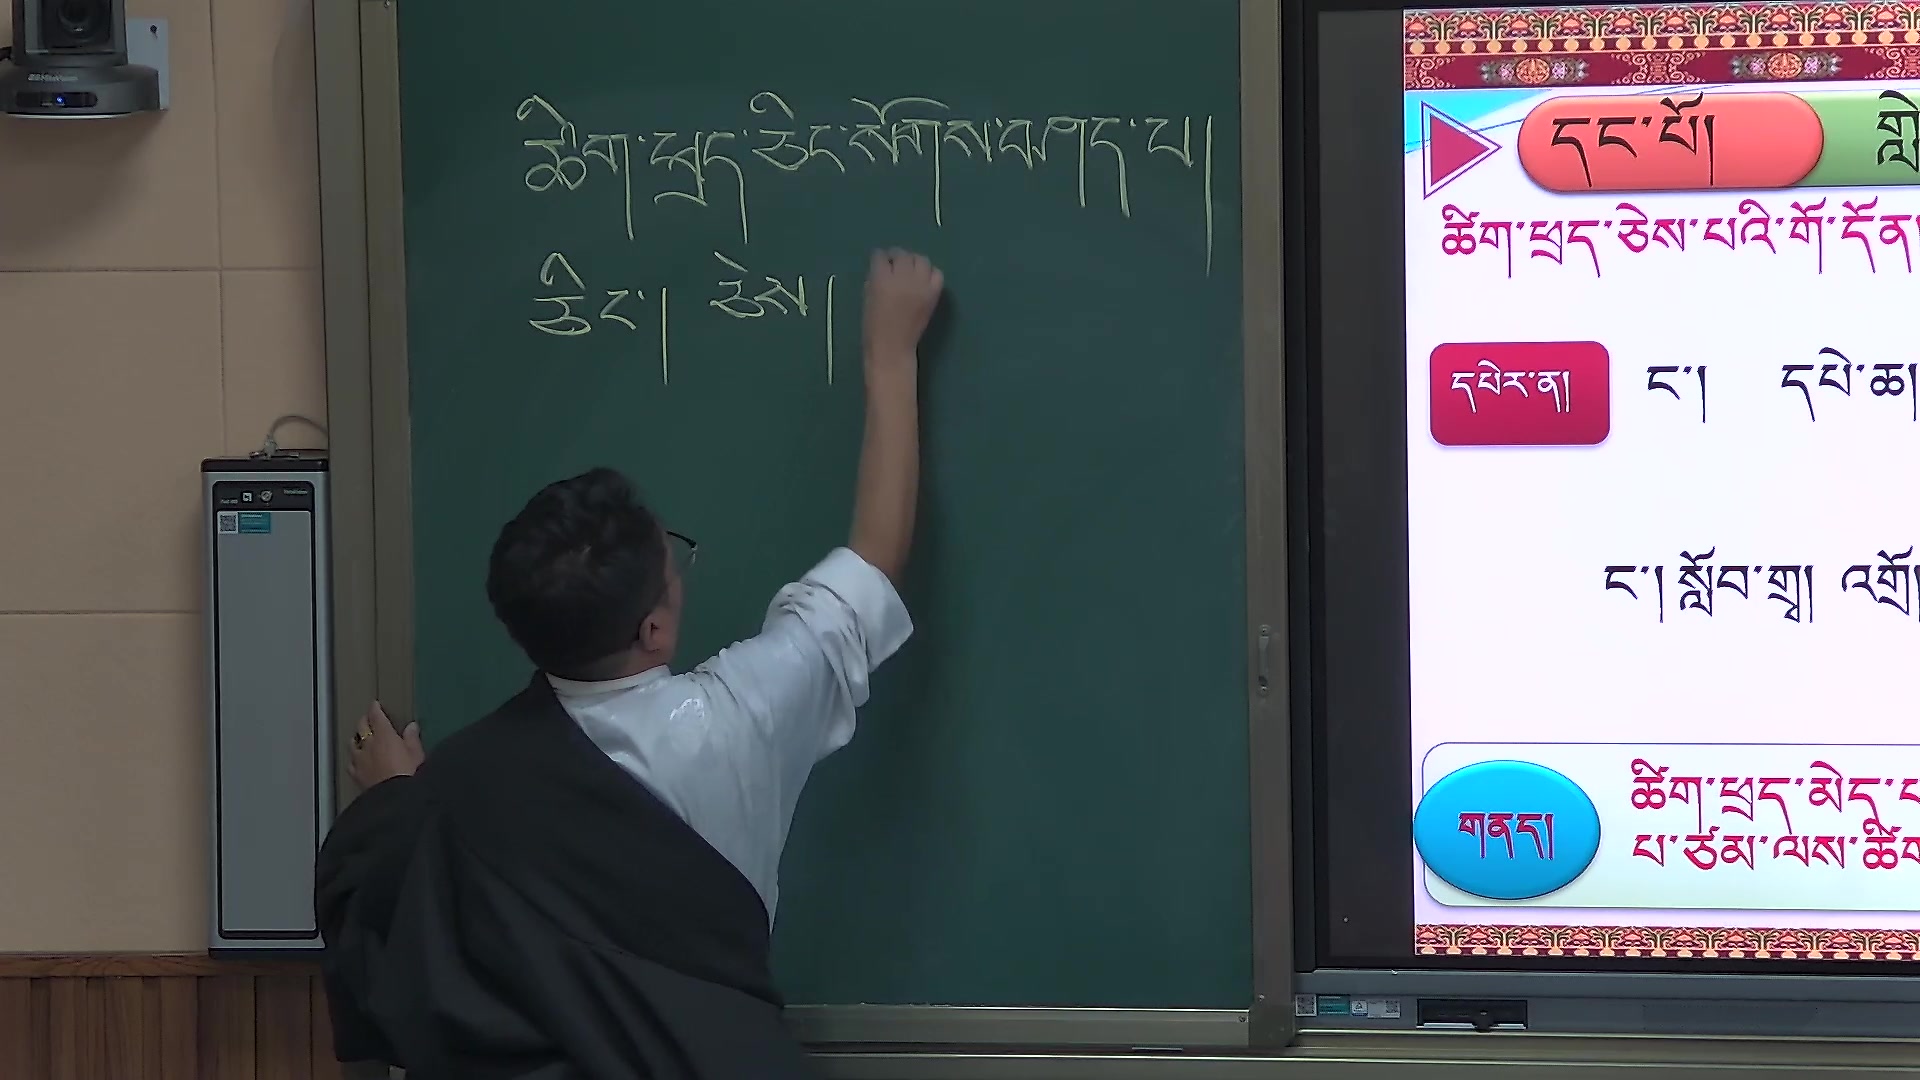 ཚིག་ཕྲད་ཅིང་སོགས་བཤད་པ།
ཅིང་། ཅེས།
དང་པོ།
ཚིག་ཕྲད་ཅེས་པའི་གོ་དོན།
དཔེར་ན།
ང་། དཔེ་ཆ།
ང་། སློབ་གྲྭ། འགྲོ།
གནད།
ཚིག་ཕྲད་མེད་པ
པ་ཙམ་ལས་ཚིག